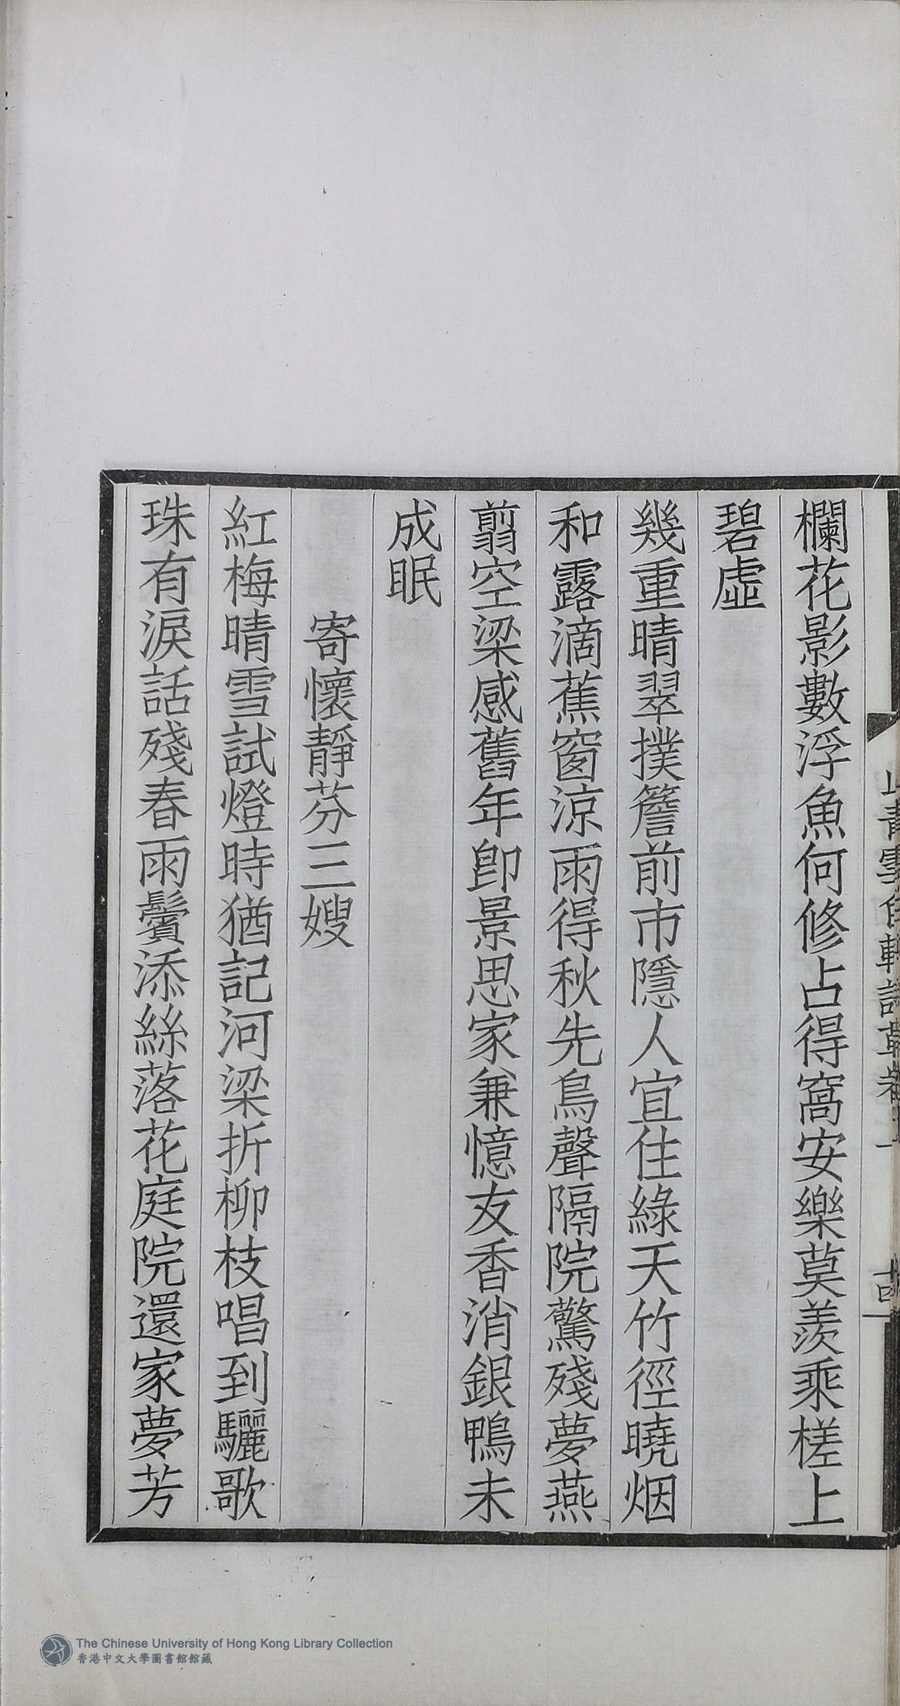 欄花影數浮魚何修占得窩安樂莫羨乘槎上
碧虛
幾重晴翠撲簷前市隱人宜住綠天竹徑曉烟
和露滴蕉窗涼雨得秋先鳥聲隔院驚殘夢燕
翦空梁感舊年卽景思家兼憶友香消銀鴨未
成眠
寄懷靜芬三嫂
紅梅晴雪試燈時猶記河梁折柳枝唱到驪歌
珠有淚話殘春雨鬢添絲落花庭院還家夢芳
The Chinese University of Hong Kong Library Collection
香港中文大學圖書館館藏